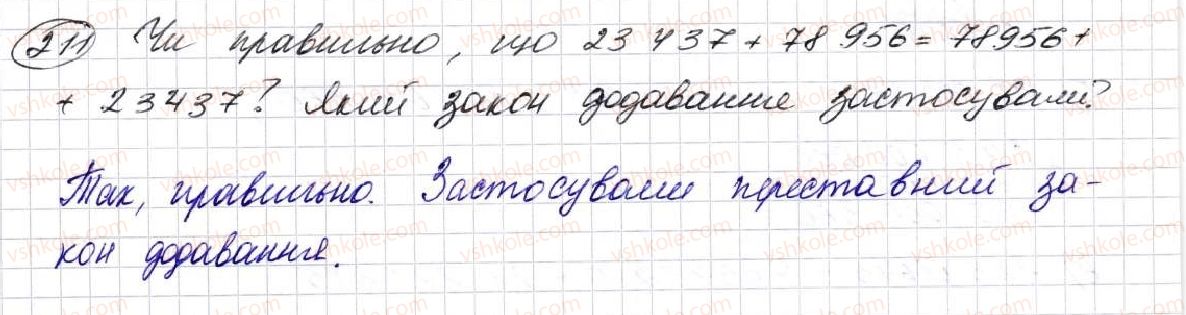 211 Чи правильно, що 23 437 + 78 956 = 78956 +
+ 23437? Який закон додавання застосували?
Так, правильно. Застосували переставний за-
кон додавання.